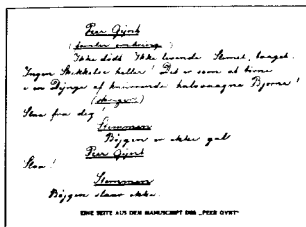 Peer Gynt
(
Ikke dødt. Ikke levende. Slimet, taaget.
Ingen Skikkelse heller! Det er som at törne
i en Dynge af knurrende halvvaagne Bjørne!
(skriger)
Slaa fra dig!
Stemmen
Bøjgen er ikke gal
Peer Gynt
Slaa!
Stemmen
Bøjgen slaar ikke.
EINE SEITE AUS DEM MANUSCRIPT DES „PEER GYNT"